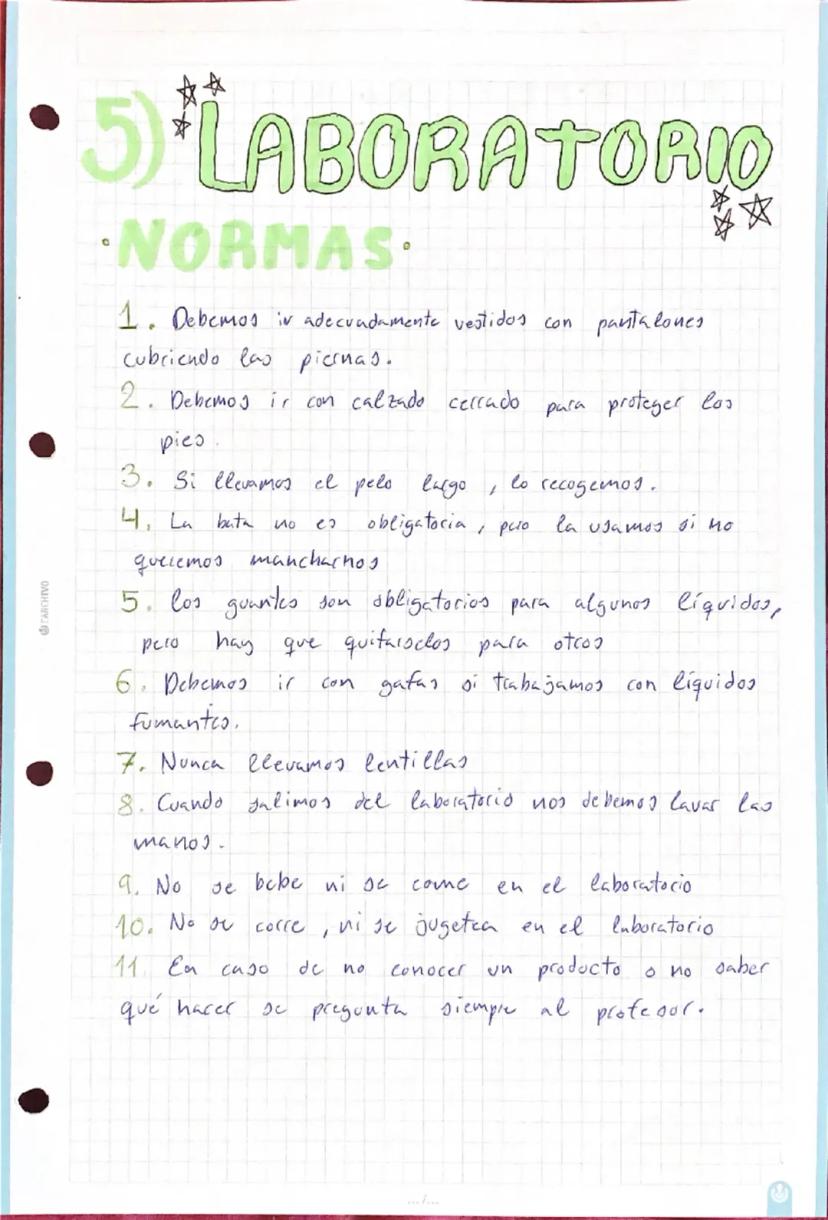 5) LABORATORIO
·NORMAS·
1. Debemos ir adecuadamente vestidos con pantalones
cubriendo las piernas.
2. Debemos ir con calzado cerrado para proteger los
pies.
3. Si llevamos el pelo largo, lo recogemos.
4. La bata no es obligatoria, pero la usamos si no
queremos mancharnos
5. Los guantes son obligatorios para algunos líquidos,
pero hay que quitarselos para otros
6. Debemos ir con gafas si trabajamos con líquidos
fumantes.
7. Nunca llevamos lentillas
8. Cuando salimos del laboratorio nos debemos lavar las
manos.
9. No se bebe ni se come en el laboratorio
10. No se corre, ni se jugetea en el laboratorio
11. En caso de no conocer un producto o no saber
qué hacer se pregunta siempre al profesor.
CARCHIVO
.../...